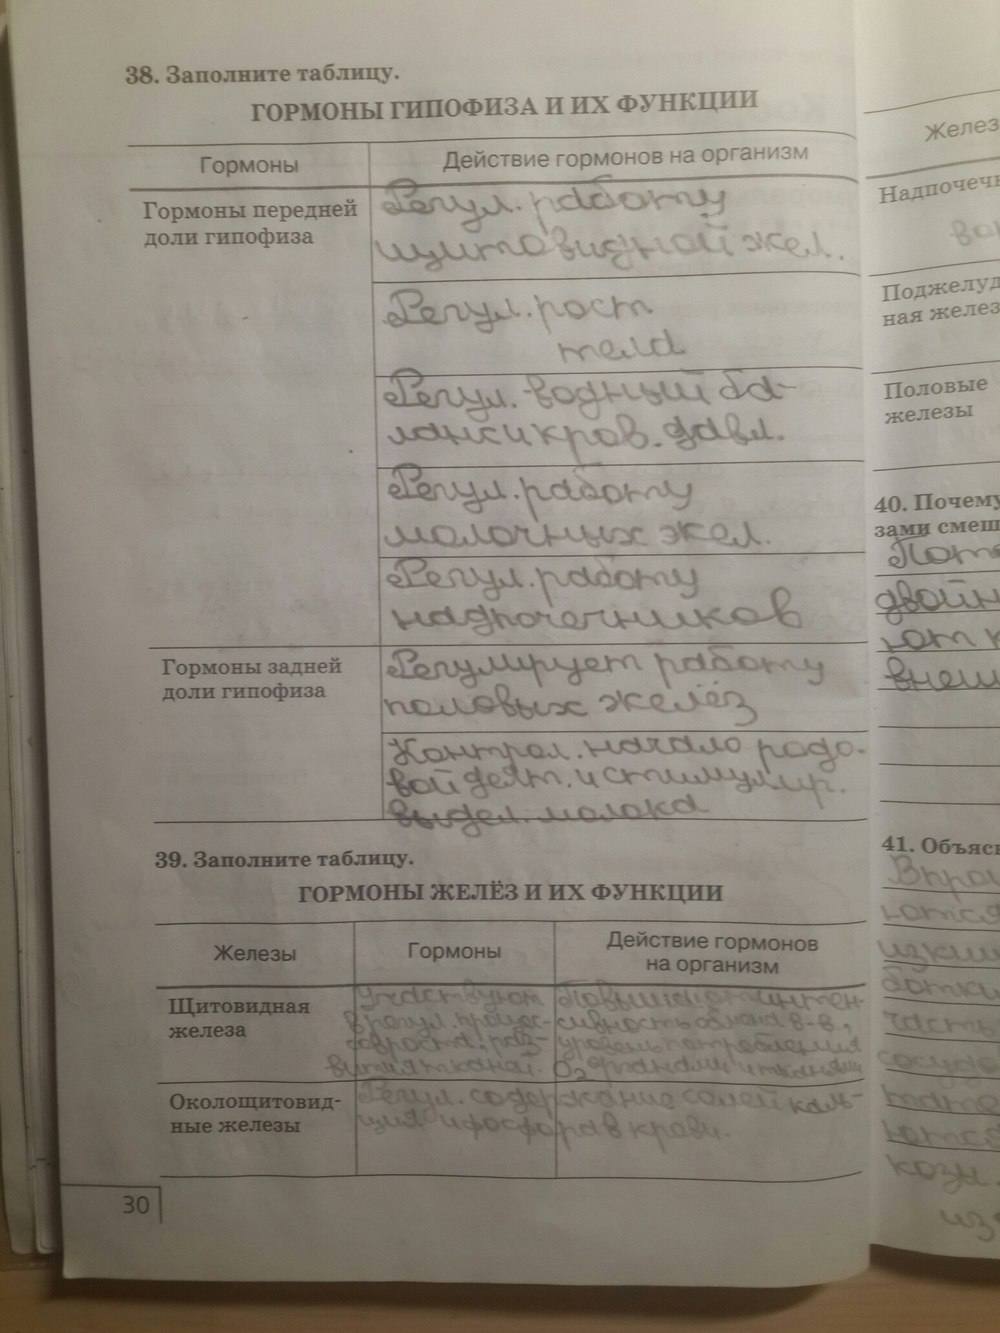 38. Заполните таблицу.
ГОРМОНЫ ГИПОФИЗА И ИХ ФУНКЦИИ
Гормоны
Действие гормонов на организм
Гормоны передней
доли гипофиза
Регул. работу
щитовидной жел.
Регул. рост
тела
Регул. водный ба-
ланс и кров. давл.
Регул. работу
молочных жел.
Регул. работу
надпочечников
Гормоны задней
доли гипофиза
Регулирует работу
половых желёз
Контрол. начало родо-
вой деят. и стимулир.
выдел. молока
39. Заполните таблицу.
ГОРМОНЫ ЖЕЛЁЗ И ИХ ФУНКЦИИ
Железы
Гормоны
Действие гормонов
на организм
Щитовидная
железа
Участвуют
в регул. процес-
сов роста, раз-
вития тканей.
Повышают интен-
сивность обмена в-в,
уровень потребления
O2 органами и тканями
Околощитовид-
ные железы
Регул. содержание солей каль-
ция и фосфора в крови.
30
Желез
Надпочечн
Поджелуд
ная желез
Половые
железы
40. Почему
зами смеш
Пот
двойн
ют
внеш
41. Объясн
Впра
ются
сосуд
ются
козы.